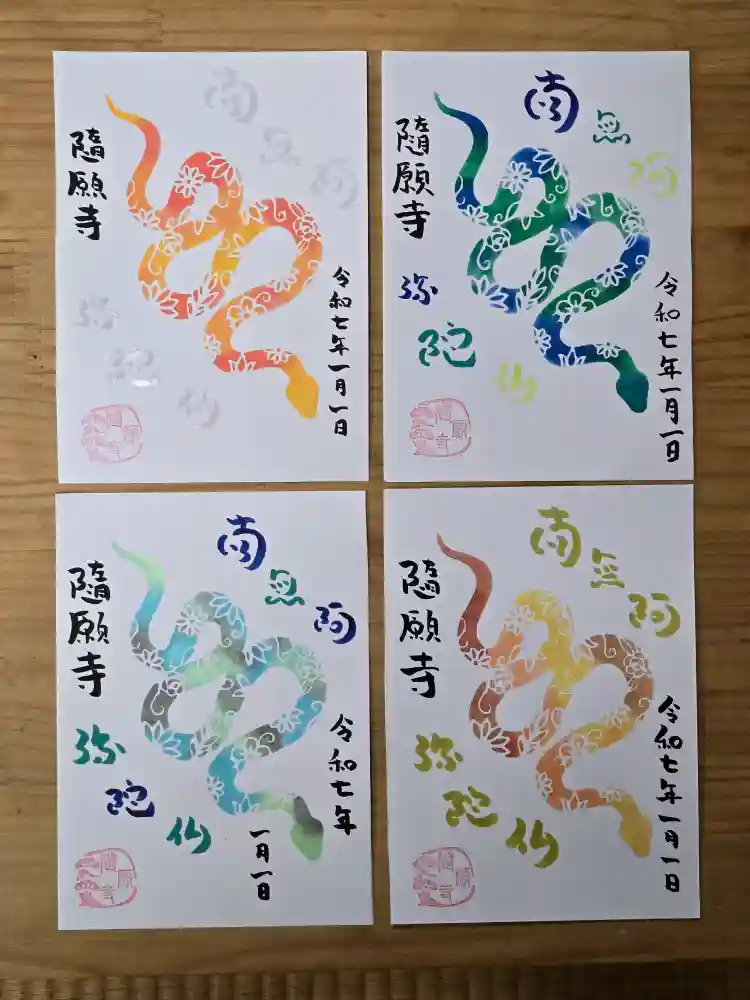 南無阿
弥陀仏
隨願寺
令和七年一月一日
隨願寺
南無阿
弥陀仏
隨願寺
令和七年一月一日
隨願寺
南無阿
弥陀仏
隨願寺
令和七年
一月一日
隨願寺
南無阿
弥陀仏
隨願寺
令和七年一月一日
隨願寺